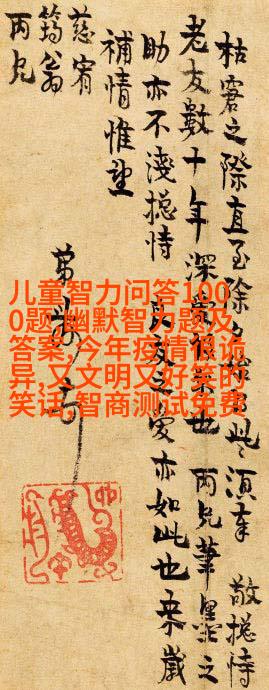 枯窘之際直至除夕此須奉 敬摠恃
老友數十年深也 丙兄筆墨之
助亦不淺摠恃 友之愛亦如此也
補情惟望
慈宥
筠翁
丙兄
弟
儿童智力问答100
0题,幽默智力题及
答案,今年疫情很诡
异,又文明又好笑的
笑话,智商测试免费